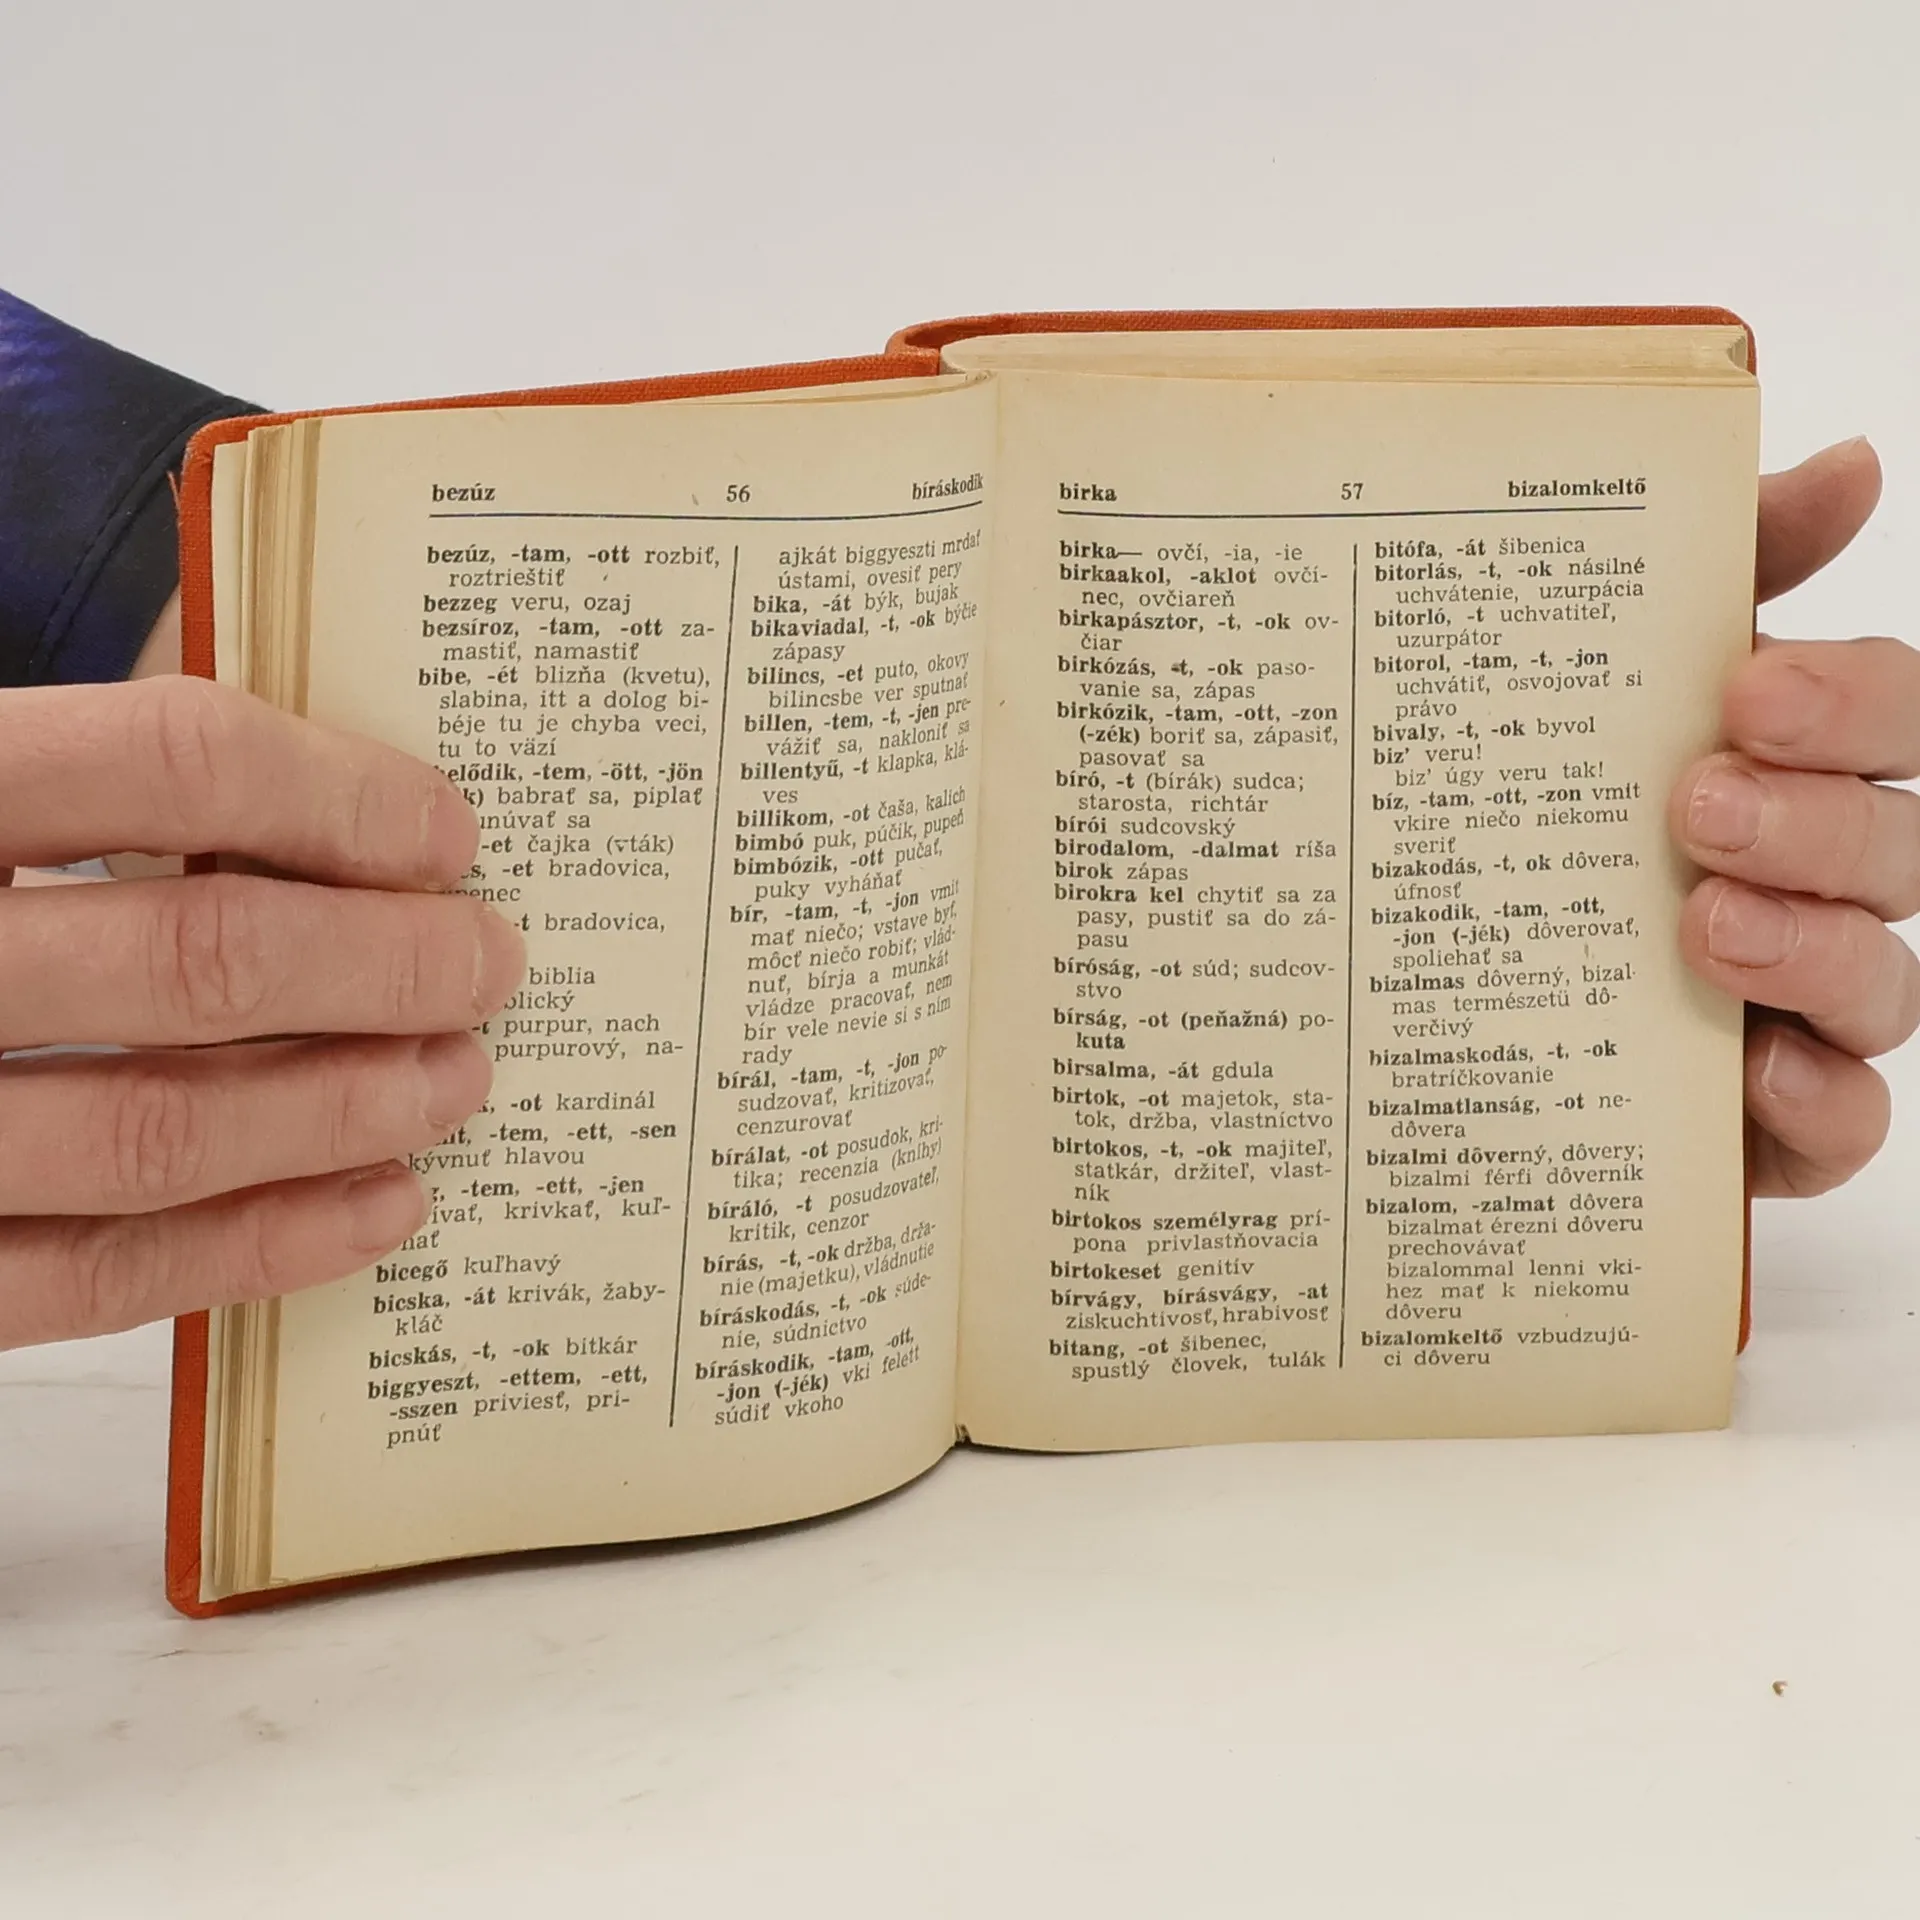 bezúz 56 bíráskodik
bezúz, -tam, -ott rozbiť,
roztrieštiť
bezzeg veru, ozaj
bezsíroz, -tam, -ott za-
mastiť, namastiť
bibe, -ét blizňa (kvetu),
slabina, itt a dolog bi-
béje tu je chyba veci,
tu to väzí
-tem, -ött, -jön
babrať sa, piplať
sa
-et čajka (vták)
-et bradovica,
-t bradovica,
biblia
purpur, nach
purpurový, na-
-ot kardinál
-tem, -ett, -sen
kývnuť hlavou
-tem, -ett, -jen
krivkať, kuľ-
bicegő kuľhavý
bicska, -át krivák, žaby-
kláč
bicskás, -t, -ok bitkár
biggyeszt, -ettem, -ett,
-sszen priviesť, pri-
pnúť
ajkát biggyeszti mrdať
ústami, ovesiť pery
bika, -át býk, bujak
bikaviadal, -t, -ok býčie
zápasy
bilincs, -et puto, okovy
bilincsbe ver sputnať
billen, -tem, -t, -jen pre-
vážiť sa, nakloniť sa
billentyű, -t klapka, klá-
ves
billikom, -ot čaša, kalich
bimbó puk, púčik, pupeň
bimbózik, -ott pučať,
puky vyháňať
bír, -tam, -t, -jon vmiť
mať niečo; vstave byť,
môcť niečo robiť; vlád-
nuť, bírja a munkát
vládze pracovať, nem
bír vele nevie si s ním
rady
bírál, -tam, -t, -jon po-
sudzovať, kritizovať,
cenzurovať
bírálat, -ot posudok, kri-
tika; recenzia (knihy)
bíráló, -t posudzovateľ,
kritik, cenzor
bírás, -t, -ok držba, drža-
nie (majetku), vládnutie
bíráskodás, -t, -ok súde-
nie, súdnictvo
bíráskodik, -tam, -ott,
-jon (-jék) vki felett
súdiť vkoho
birka 57 bizalomkeltő
birka— ovčí, -ia, -ie
birkaakol, -aklot ovčí-
nec, ovčiareň
birkapásztor, -t, -ok ov-
čiar
birkózás, -t, -ok paso-
vanie sa, zápas
birkózik, -tam, -ott, -zon
(-zék) boriť sa, zápasiť,
pasovať sa
bíró, -t (bírák) sudca;
starosta, richtár
bírói sudcovský
birodalom, -dalmat ríša
birok zápas
birokra kel chytiť sa za
pasy, pustiť sa do zá-
pasu
bíróság, -ot súd; sudcov-
stvo
bírság, -ot (peňažná) po-
kuta
birsalma, -át gdula
birtok, -ot majetok, sta-
tok, držba, vlastníctvo
birtokos, -t, -ok majiteľ,
statkár, držiteľ, vlast-
ník
birtokos személyrag prí-
pona privlastňovacia
birtokeset genitív
bírvágy, bírásvágy, -at
ziskuchtivosť, hrabivosť
bitang, -ot šibenec,
spustlý človek, tulák
bitófa, -át šibenica
bitorlás, -t, -ok násilné
uchvátenie, uzurpácia
bitorló, -t uchvatiteľ,
uzurpátor
bitorol, -tam, -t, -jon
uchvátiť, osvojovať si
právo
bivaly, -t, -ok byvol
biz' veru!
biz' úgy veru tak!
bíz, -tam, -ott, -zon vmit
vkire niečo niekomu
sveriť
bizakodás, -t, ok dôvera,
úfnosť
bizakodik, -tam, -ott,
-jon (-jék) dôverovať,
spoliehať sa
bizalmas dôverný, bizal-
mas természetü dô-
verčivý
bizalmaskodás, -t, -ok
bratríčkovanie
bizalmatlanság, -ot ne-
dôvera
bizalmi dôverný, dôvery;
bizalmi férfi dôverník
bizalom, -zalmat dôvera
bizalmat érezni dôveru
prechovávať
bizalommal lenni vki-
hez mať k niekomu
dôveru
bizalomkeltő vzbudzujú-
ci dôveru